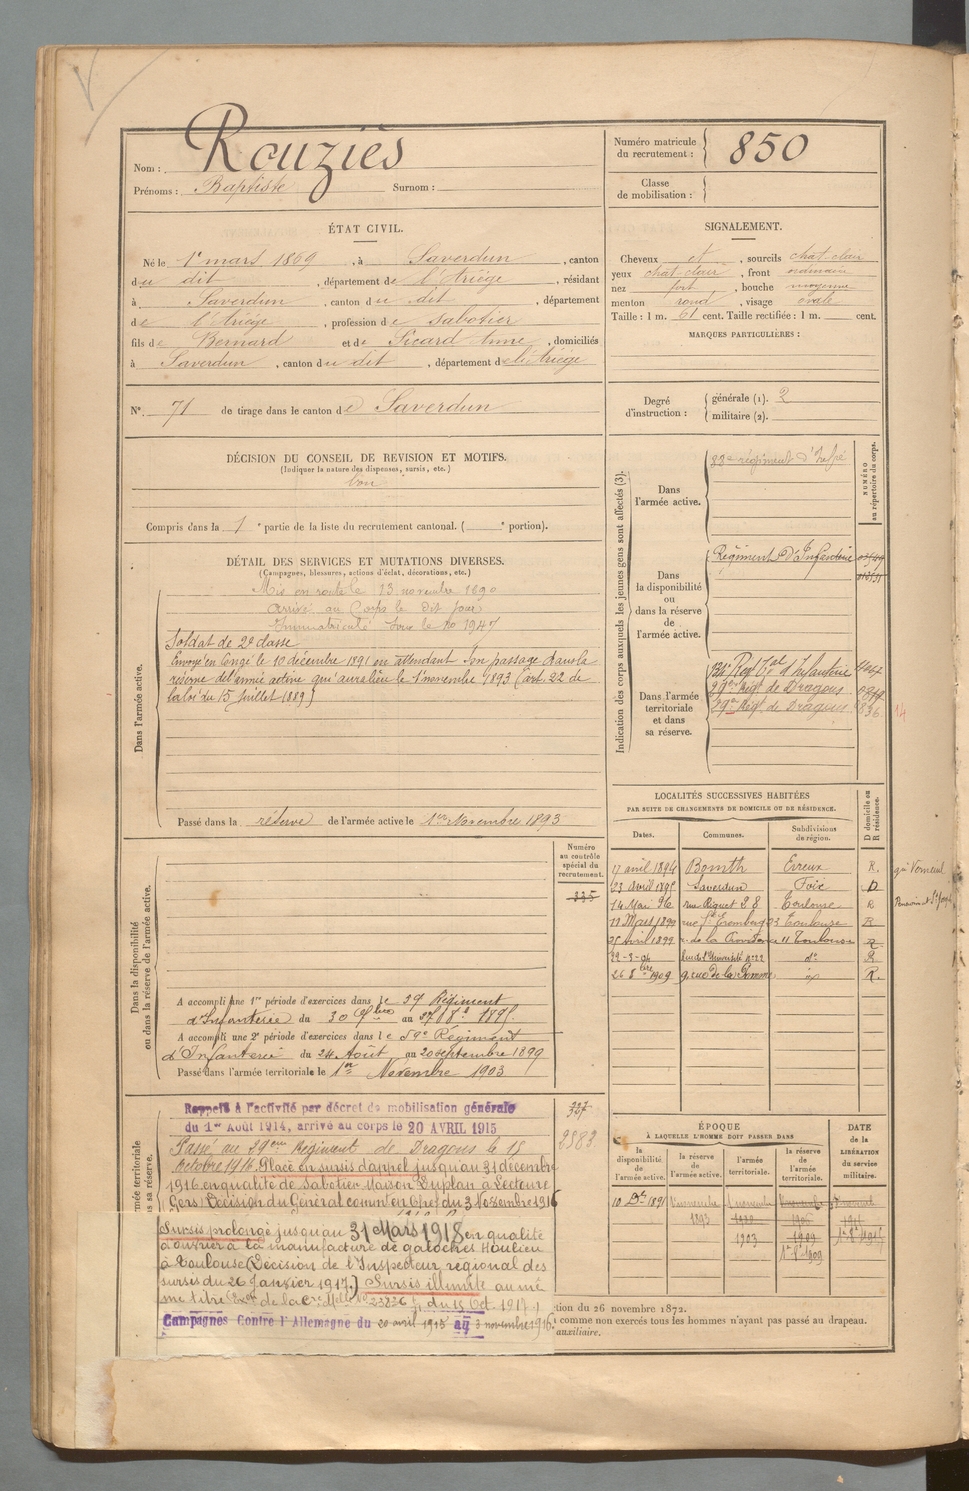 Nom : Rouziès
Prénoms : Baptiste Surnom :
Numéro matricule du recrutement : 850
Classe de mobilisation :
ÉTAT CIVIL.
Né le 1er mars 1869, à Saverdun, canton
du dit, département de l'Ariège, résidant
à Saverdun, canton du dit, département
de l'Ariège, profession de sabotier
fils de Bernard et de Sicard Anne, domiciliés
à Saverdun, canton du dit, département de l'Ariège
SIGNALEMENT.
Cheveux et, sourcils chat. clair
yeux chat. clair, front ordinaire
nez fort, bouche moyenne
menton rond, visage ovale
Taille : 1 m. 61 cent. Taille rectifiée : 1 m. cent.
MARQUES PARTICULIÈRES :
N° 71 de tirage dans le canton de Saverdun
Degré d'instruction : générale (1). 2
militaire (2).
DÉCISION DU CONSEIL DE REVISION ET MOTIFS.
(Indiquer la nature des dispenses, sursis, etc.)
bon
Compris dans la 1e partie de la liste du recrutement cantonal. ( e portion).
DÉTAIL DES SERVICES ET MUTATIONS DIVERSES.
(Campagnes, blessures, actions d'éclat, décorations, etc.)
Dans l'armée active.
Mis en route le 13 novembre 1890
Arrivé au Corps le dit jour
Immatriculé sous le no 1947
Soldat de 2e classe
Envoyé en congé le 10 décembre 1891 en attendant son passage dans la
réserve de l'armée active qui aura lieu le 1er novembre 1893 (art. 22 de
la loi du 15 juillet 1889)
Passé dans la réserve de l'armée active le 1er Novembre 1893
Indication des corps auxquels les jeunes gens sont affectés (3).
NUMÉRO au répertoire du corps.
Dans l'armée active.
régiment d'Infie
Dans la disponibilité ou dans la réserve de l'armée active.
Régiment d'Infanterie
Dans l'armée territoriale et dans sa réserve.
Régt Tal d'Infanterie
Régt de Dragons
Régt de Dragons
14
LOCALITÉS SUCCESSIVES HABITÉES
PAR SUITE DE CHANGEMENTS DE DOMICILE OU DE RÉSIDENCE.
Dates. Communes. Subdivisions de région. D domicile ou R résidence.
17 avril 1894 Evreux R.
23 avril 1895 Saverdun Foix D
14 Mai 96 rue Riquet 28 Toulouse R
19 Mars 1899 rue 23 Toulouse R
25 Avril 1899 r. de la 11 Toulouse R
29-3-04 rue de l'Université no 22 do R
1909 9, rue de la Pomme R.
Dans la disponibilité ou dans la réserve de l'armée active.
Numéro au contrôle spécial du recrutement.
335
A accompli une 1re période d'exercices dans le Régiment
d'Infanterie du 30 au 1895
A accompli une 2e période d'exercices dans le 59e Régiment
d'Infanterie du 24 Août au 20 septembre 1899
Passé dans l'armée territoriale le 1er Novembre 1903
Rappelé à l'activité par décret de mobilisation générale
du 1er Août 1914, arrivé au corps le 20 AVRIL 1915
Passé au Régiment de Dragons le 15
Octobre 1916. Placé en sursis d'appel jusqu'au 31 décembre
1916 en qualité de Sabotier Maison Duplan à Lectoure
Gers. Décision du Général commt en Chef du 3 Novembre 1916
Sursis prolongé jusqu'au 31 Mars 1918 en qualité
d'ouvrier à la manufacture de galoches Moulieu
à Toulouse (Décision de l'Inspecteur régional des
sursis du 26 Janvier 1917.) Sursis illimité au mê
me titre de la du 15 Oct. 1917
Campagnes Contre l'Allemagne du 20 avril 1915 au 3 novembre 1916
ÉPOQUE
À LAQUELLE L'HOMME DOIT PASSER DANS
la disponibilité de l'armée active. la réserve de l'armée active. l'armée territoriale. la réserve de l'armée territoriale. DATE de la LIBÉRATION du service militaire.
10 1891 1er novembre 1893
1903 1909
1909
tion du 26 novembre 1872.
comme non exercés tous les hommes n'ayant pas passé au drapeau.
auxiliaire.